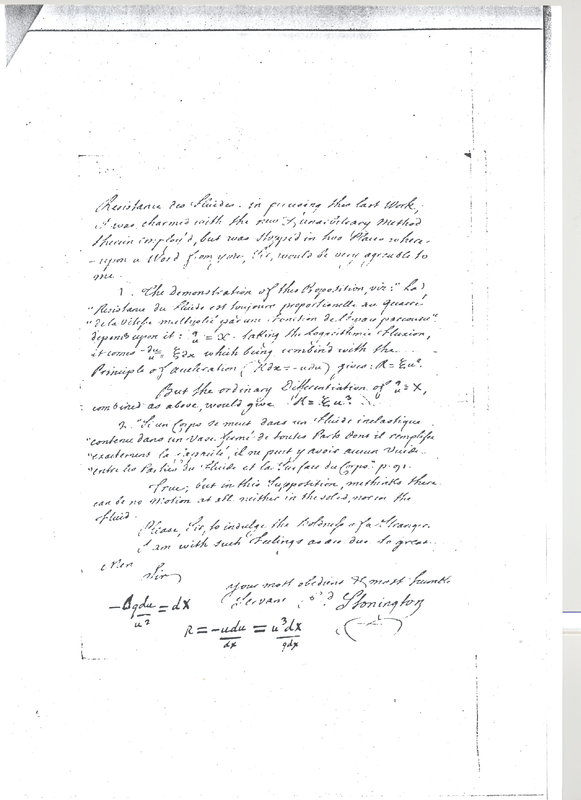 Resistance des Fluides. in perusing this last Work,
I was charmed with the new & unarbitrary Method
therein employ'd, but was stopped in two Places where-
-upon a Word from you, Sir, would be very agreable to
me.
1. The Demonstration of this Proposition, viz: "La
"Resistance du Fluide est toujours proportionelle au quarré
"de la Vitesse multiplié par une fonction de l'Espace parcouru"
depends upon it: q/u = X. taking the Logarithmic Fluxion,
it comes -du/u = ξdx which being combin'd with the
Principle of acceleration (Rdx = -udu) gives: R = ξu².
But the ordinary Differentiation of q/u = X,
combined as above, would give R = ξu³
2. "Si un Corps se meut dans un Fluide inelastique
"contenu dans un Vase fermé de toutes Parts dont il remplisse
"exactement la Capacité, il ne peut y avoir aucun Vuide
"entre les Parties du Fluide et la Surface du Corps" p. 91.
True; but in this Supposition, methinks there
can be no Motion at all neither in the solid, nor in the
Fluid.
Please, Sir, to indulge the Boldness of a Stranger.
I am with such Feelings as are due to great
Men
Sir
your most obedient & most humble
Servant Stonington
-qdu/u² = dX
R = -udu/dx = u³dX/qdx